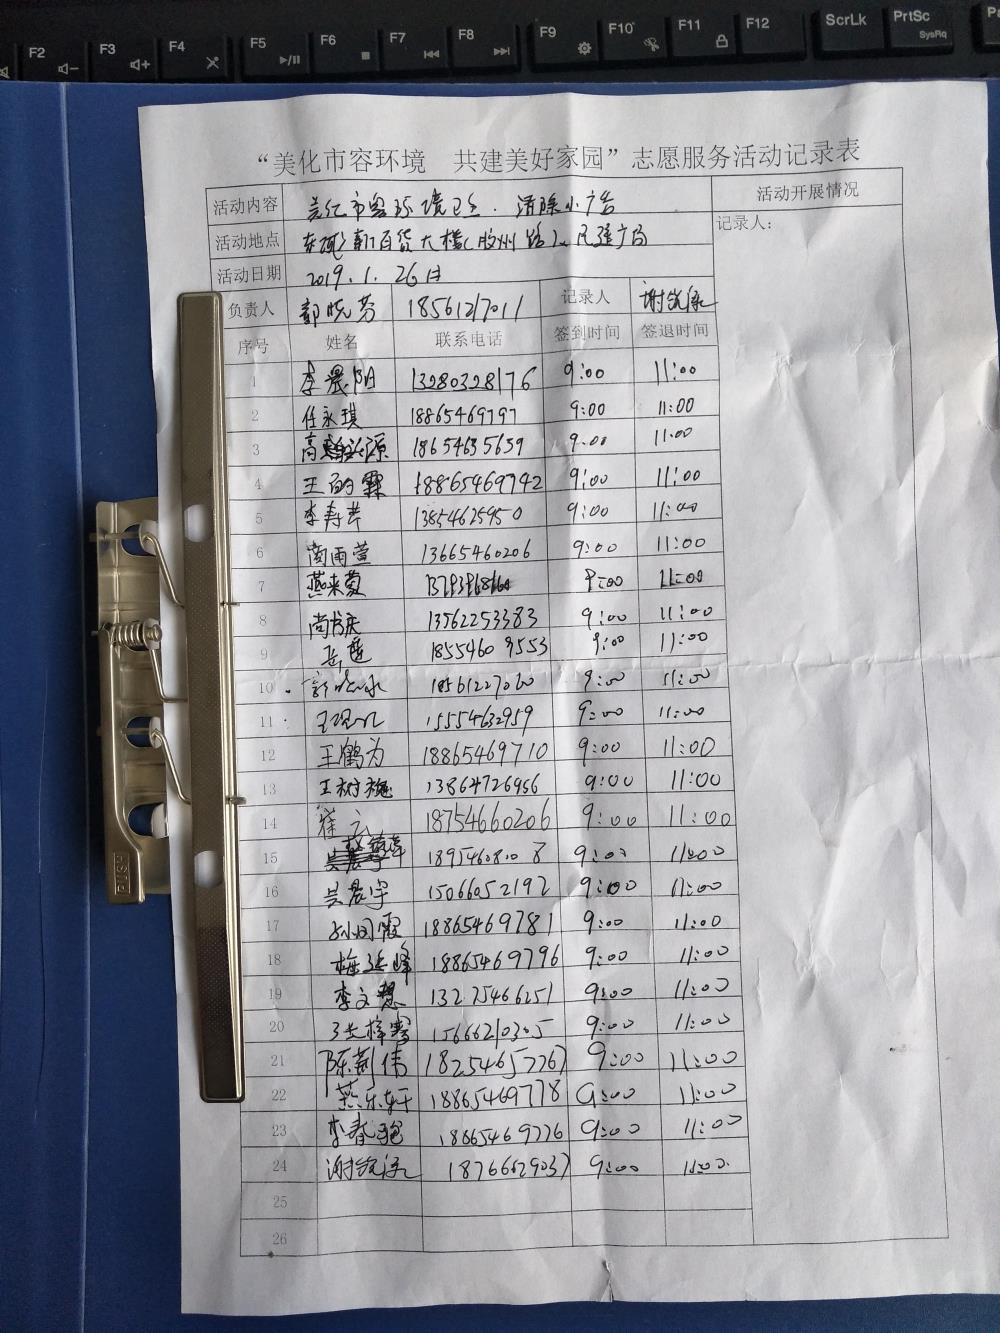 F2 F3 F4 F5 F6 F7 F8 F9 F10 F11 F12 ScrLk PrtSc SysRq
“美化市容环境 共建美好家园”志愿服务活动记录表
活动内容 美化市容环境卫生．清除小广告 活动开展情况
活动地点 百货大楼(胶州路)、民建广场 记录人：
活动日期 2019.1.26日
负责人 郭晓芳 18561217011 记录人
序号 姓名 联系电话 签到时间 签退时间
1 李晨阳 13280328176 9:00 11:00
2 任永琪 18865469797 9:00 11:00
3 高 源 18654635659 9:00 11:00
4 王 霖 18865469742 9:00 11:00
5 李寿芹 13854625950 9:00 11:00
6 商雨萱 13665460206 9:00 11:00
7 燕来 9:00 11:00
8 尚 13562253383 9:00 11:00
9 岳 18554609553 9:00 11:00
10 18561227060 9:00 11:00
11 王 15554632959 9:00 11:00
12 王鹤为 18865469710 9:00 11:00
13 王树 13864726956 9:00 11:00
14 崔 18754660206 9:00 11:00
15 9:00 11:00
16 吴晨宇 15066052192 9:00 11:00
17 孙 霞 18865469781 9:00 11:00
18 梅延峰 18865469796 9:00 11:00
19 李文 13275466251 9:00 11:00
20 15666210305 9:00 11:00
21 陈 伟 18254657267 9:00 11:00
22 燕乐轩 18865469778 9:00 11:00
23 李春 18865469776 9:00 11:00
24 谢 18766629037 9:00 11:00
25
26
PUSH